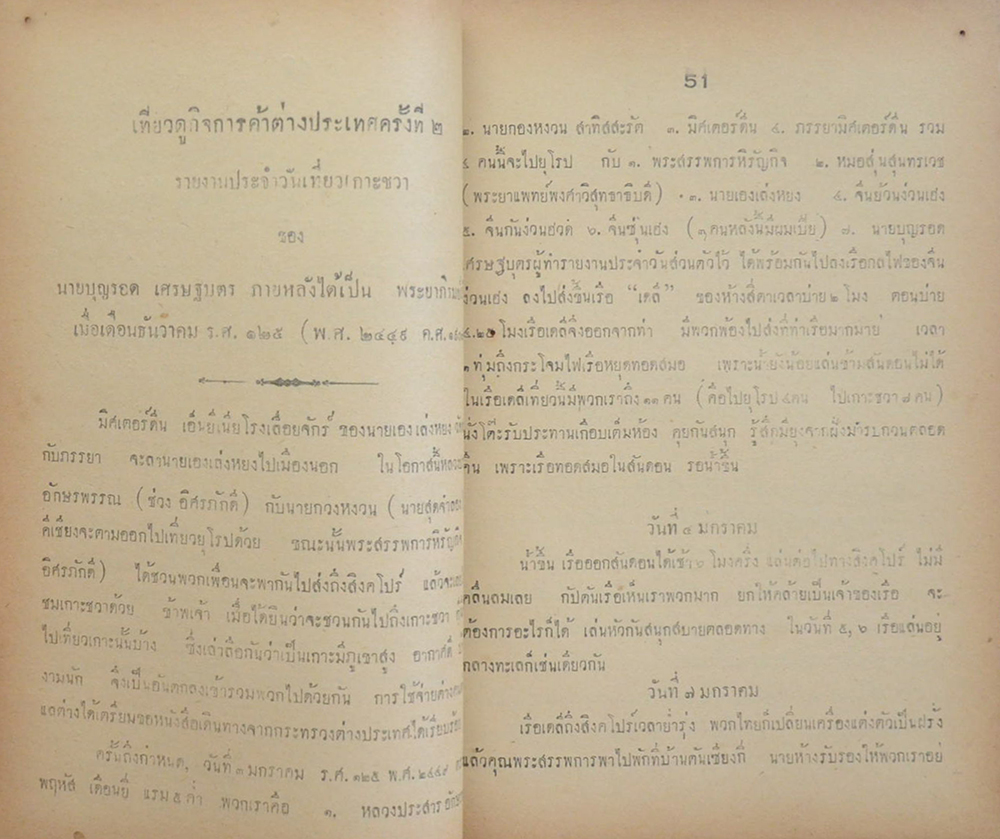 เที่ยวดูกิจการค้าต่างประเทศครั้งที่ ๒
รายงานประจำวันเที่ยวเกาะชวา
ของ
นายบุญรอด เศรษฐบุตร ภายหลังได้เป็น พระยาภิรม
เมื่อเดือนธันวาคม ร.ศ. ๑๒๕ (พ.ศ. ๒๔๔๙ ค.ศ.
มิศเตอร์ดึ่น เอ็นยิเนีย โรงเลื่อยจักร์ ของนายเองเล่งหยง
กับภรรยา จะลานายเองเล่งหยงไปเมืองนอก ในโอกาสนี้หลวง
อักษรพรรณ (ช่วง อิศรภักดี) กับนายกวงหงวน (นายสุดจำลอง
คี่เซียงจะตามออกไปเที่ยวยุโรปด้วย ขณะนั้นพระสรรพการหิรัญกิจ
อิศรภักดี) ได้ชวนพวกเพื่อนจะพากันไปส่งถึงสิงคโปร์ แล้วจะเลย
ชมเกาะชวาด้วย ข้าพเจ้า เมื่อได้ยินว่าจะชวนกันไปถึงเกาะชวา
ไปเที่ยวเกาะนั้นบ้าง ซึ่งเล่าลือกันว่าเป็นเกาะมีภูเขาสูง อากาศดี
งามนัก จึงเป็นอันตกลงเข้ารวมพวกไปด้วยกัน การใช้จ่ายต่างคน
แลต่างได้เตรียมขอหนังสือเดินทางจากกระทรวงต่างประเทศได้เรียบร้อย
ครั้นถึงกำหนด, วันที่ ๓ มกราคม ร.ศ. ๑๒๕ พ.ศ. ๒๔๔๙
พฤหัส เดือนยี่ แรม ๕ ค่ำ พวกเราคือ ๑. หลวงประสารอักษร
51
๒. นายกองหงวน สาทิสสะรัต ๓. มิศเตอร์ดึ่น ๔. ภรรยามิศเตอร์ดึ่น รวม
๔ คนนี้จะไปยุโรป กับ ๑. พระสรรพการหิรัญกิจ ๒. หมอสุ่นสุนทรเวช
(พระยาแพทย์พงศาวิสุทธาธิบดี) ๓. นายเองเล่งหยง ๔. จีนย้วนง่วนเฮง
๕. จีนกันง่วนฮวด ๖. จีนซุ่นเฮง (๓ คนหลังนี้มีผมเปีย) ๗. นายบุญรอด
เศรษฐบุตรผู้ทำรายงานประจำวันส่วนตัวไว้ ได้พร้อมกันไปลงเรือกลไฟของจีน
ง่วนเฮง ลงไปส่งขึ้นเรือ “เดลี” ของห้างสี่ตาเวลาบ่าย ๒ โมง ตอนบ่าย
๔.๒๕ โมงเรือเดลีจึงออกจากท่า มีพวกพ้องไปส่งที่ท่าเรือมากมาย เวลา
๑ ทุ่มถึงกระโจมไฟเรือหยุดทอดสมอ เพราะน้ำยังน้อยแล่นข้ามสันดอนไม่ได้
ในเรือเดลีเที่ยวนี้มีพวกเราถึง ๑๑ คน (คือไปยุโรป ๔ คน ไปเกาะชวา ๗ คน)
นั่งโต๊ะรับประทานเกือบเต็มห้อง คุยกันสนุก รู้สึกมียุงจากฝั่งมารบกวนตลอด
คืน เพราะเรือทอดสมอในสันดอน รอน้ำขึ้น
วันที่ ๔ มกราคม
น้ำขึ้น เรือออกสันดอนได้เช้า ๖ โมงครึ่ง แล่นต่อไปทางสิงคโปร์ ไม่มี
คลื่นลมเลย กัปตันเรือเห็นเราพวกมาก ยกให้คล้ายเป็นเจ้าของเรือ จะ
ต้องการอะไรก็ได้ เล่นหัวกันสนุกสบายตลอดทาง ในวันที่ ๕, ๖ เรือแล่นอยู่
กลางทะเลก็เช่นเดียวกัน
วันที่ ๗ มกราคม
เรือเดลีถึงสิงคโปร์เวลาย่ำรุ่ง พวกไทยก็เปลี่ยนเครื่องแต่งตัวเป็นฝรั่ง
แล้วคุณพระสรรพการพาไปพักที่บ้านตันเซียงกี่ นายห้างรับรองให้พวกเราอยู่